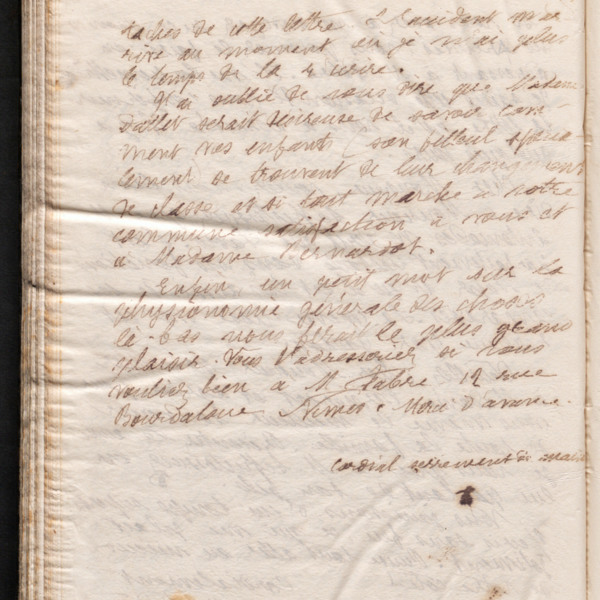 taches de cette lettre. L'accident m'ar
rive au moment où je n'ai plus
le temps de la récrire.
J'ai oublié de vous dire que Madame
Dallet serait heureuse de savoir com-
ment vos enfants (son filleul spécia-
lement) se trouvent de leur changement
de classe et si tout marche à votre
commune satisfaction à vous et
à Madame Bernardot.
Enfin, un petit mot sur la
physionomie générale des choses
là-bas nous ferait le plus grand
plaisir. Vous l'adresseriez si vous
vouliez bien à M Fabre 12 rue
Bourdaloue Nimes. Merci d'avance.
Cordial serrement de main